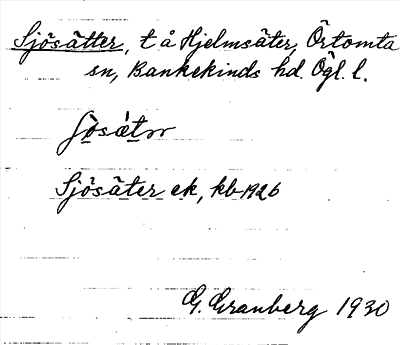 Sjösätter, t å Hjelmsäter, Örtomta
sn, Bankekinds hd. Ögl. l.
Sjösäter ek, kb 1926
G. Granberg 1930